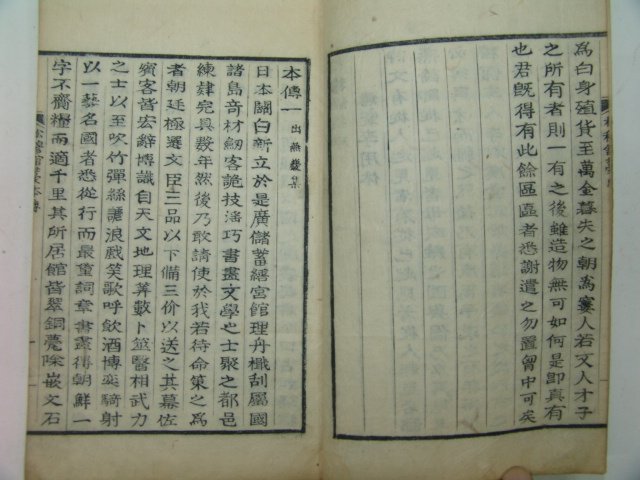 為白身殖貨至萬金暮失之朝為窶人若文人才子
之所有者則一有之後雖造物無可如何是即真有
也君旣得有此餘區區者悉謝遣之勿置胷中可矣
本傳一 出燕巖集
日本關白新立於是廣儲蓄繕宮館理舟檝刮屬國
諸島奇材劒客詭技淫巧書畵文學之士聚之都邑
練肄完具數年然後乃敢請使於我若待命策之為
者朝廷極選文臣三品以下備三价以送之其幕佐
賓客皆宏辭博識自天文地理筭數卜筮醫相武力
之士以至吹竹彈絲謔浪戲笑歌呼飮酒博奕騎射
以一藝名國者悉從行而最重詞章書畵得朝鮮一
字不齎糧而適千里其所居館皆翠銅甍除嵌文石